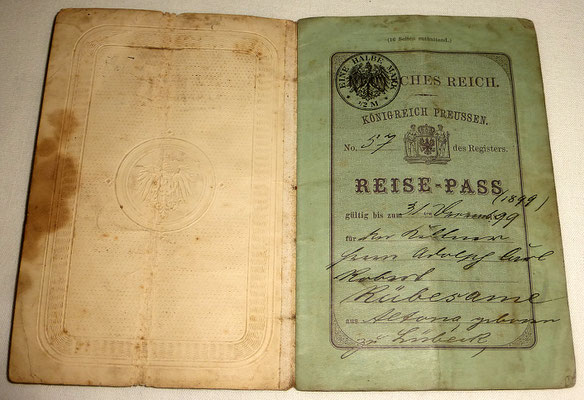 (16 Seiten enthaltend.)
EINE HALBE MARK
½ M
CHES REICH.
KÖNIGREICH PREUSSEN.
No. 57 des Registers.
REISE-PASS
(1899)
gültig bis zum 31 ten Dezember 99
für den Kellner
Herrn Adolph Carl
Robert
Rübesame
aus Altona geboren
zu Lübeck,